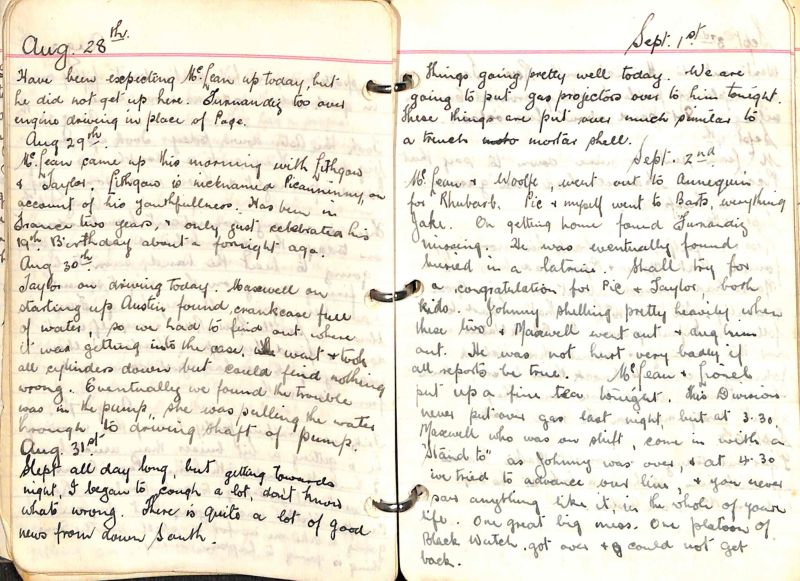 Aug. 28th.
Have been expecting McLean up today, but
he did not get up here. Furnandiz too over
engine driving in place of Page.
Aug 29th.
McLean came up this morning with Lithgow
& Taylor. Lithgow is nicknamed Picanninny, on
account of his youthfullness. Has been in
France two years, & only just celebrated his
19th Birthday about a fortnight ago.
Aug 30th.
Taylor on driving today. Maxwell on
starting up Austin found crankcase full
of water, so we had to find out where
it was getting into the case. We went & took
all cylinders down but could find nothing
wrong. Eventually we found the trouble
was in the pump, she was pulling the water
through to driving shaft of pump.
Aug. 31st
Slept all day long, but getting towards
night, I began to cough a lot, don't know
whats wrong. There is quite a lot of good
news from down South.
Sept. 1st
Things going pretty well today. We are
going to put gas projectors over to him tonight.
These things are put over much similar to
a trench moto mortar shell.
Sept. 2nd
McLean & Woolfe, went out to Annequin
for Rhubarb. Pic & myself went to Barts, everything
Jake. On getting home found Furnandiz
missing. He was eventually found
buried in a latrine. Shall try for
a congratulation for Pic & Taylor, both
kids. Johnny shelling pretty heavily when
these two & Maxwell went out & dug him
out. He was not hurt very badly if
all reports be true. McLean & Lionel
put up a fine tea tonight. This Division
never put over gas last night but at 3.30.
Maxwell who was on shift, come in with a
"Stand to" as Johnny was over, & at 4.30
we tried to advance our line, & you never
saw anything like it, in the whole of your
life. One great big mess. One platoon of
Black Watch got over & could not get
back.